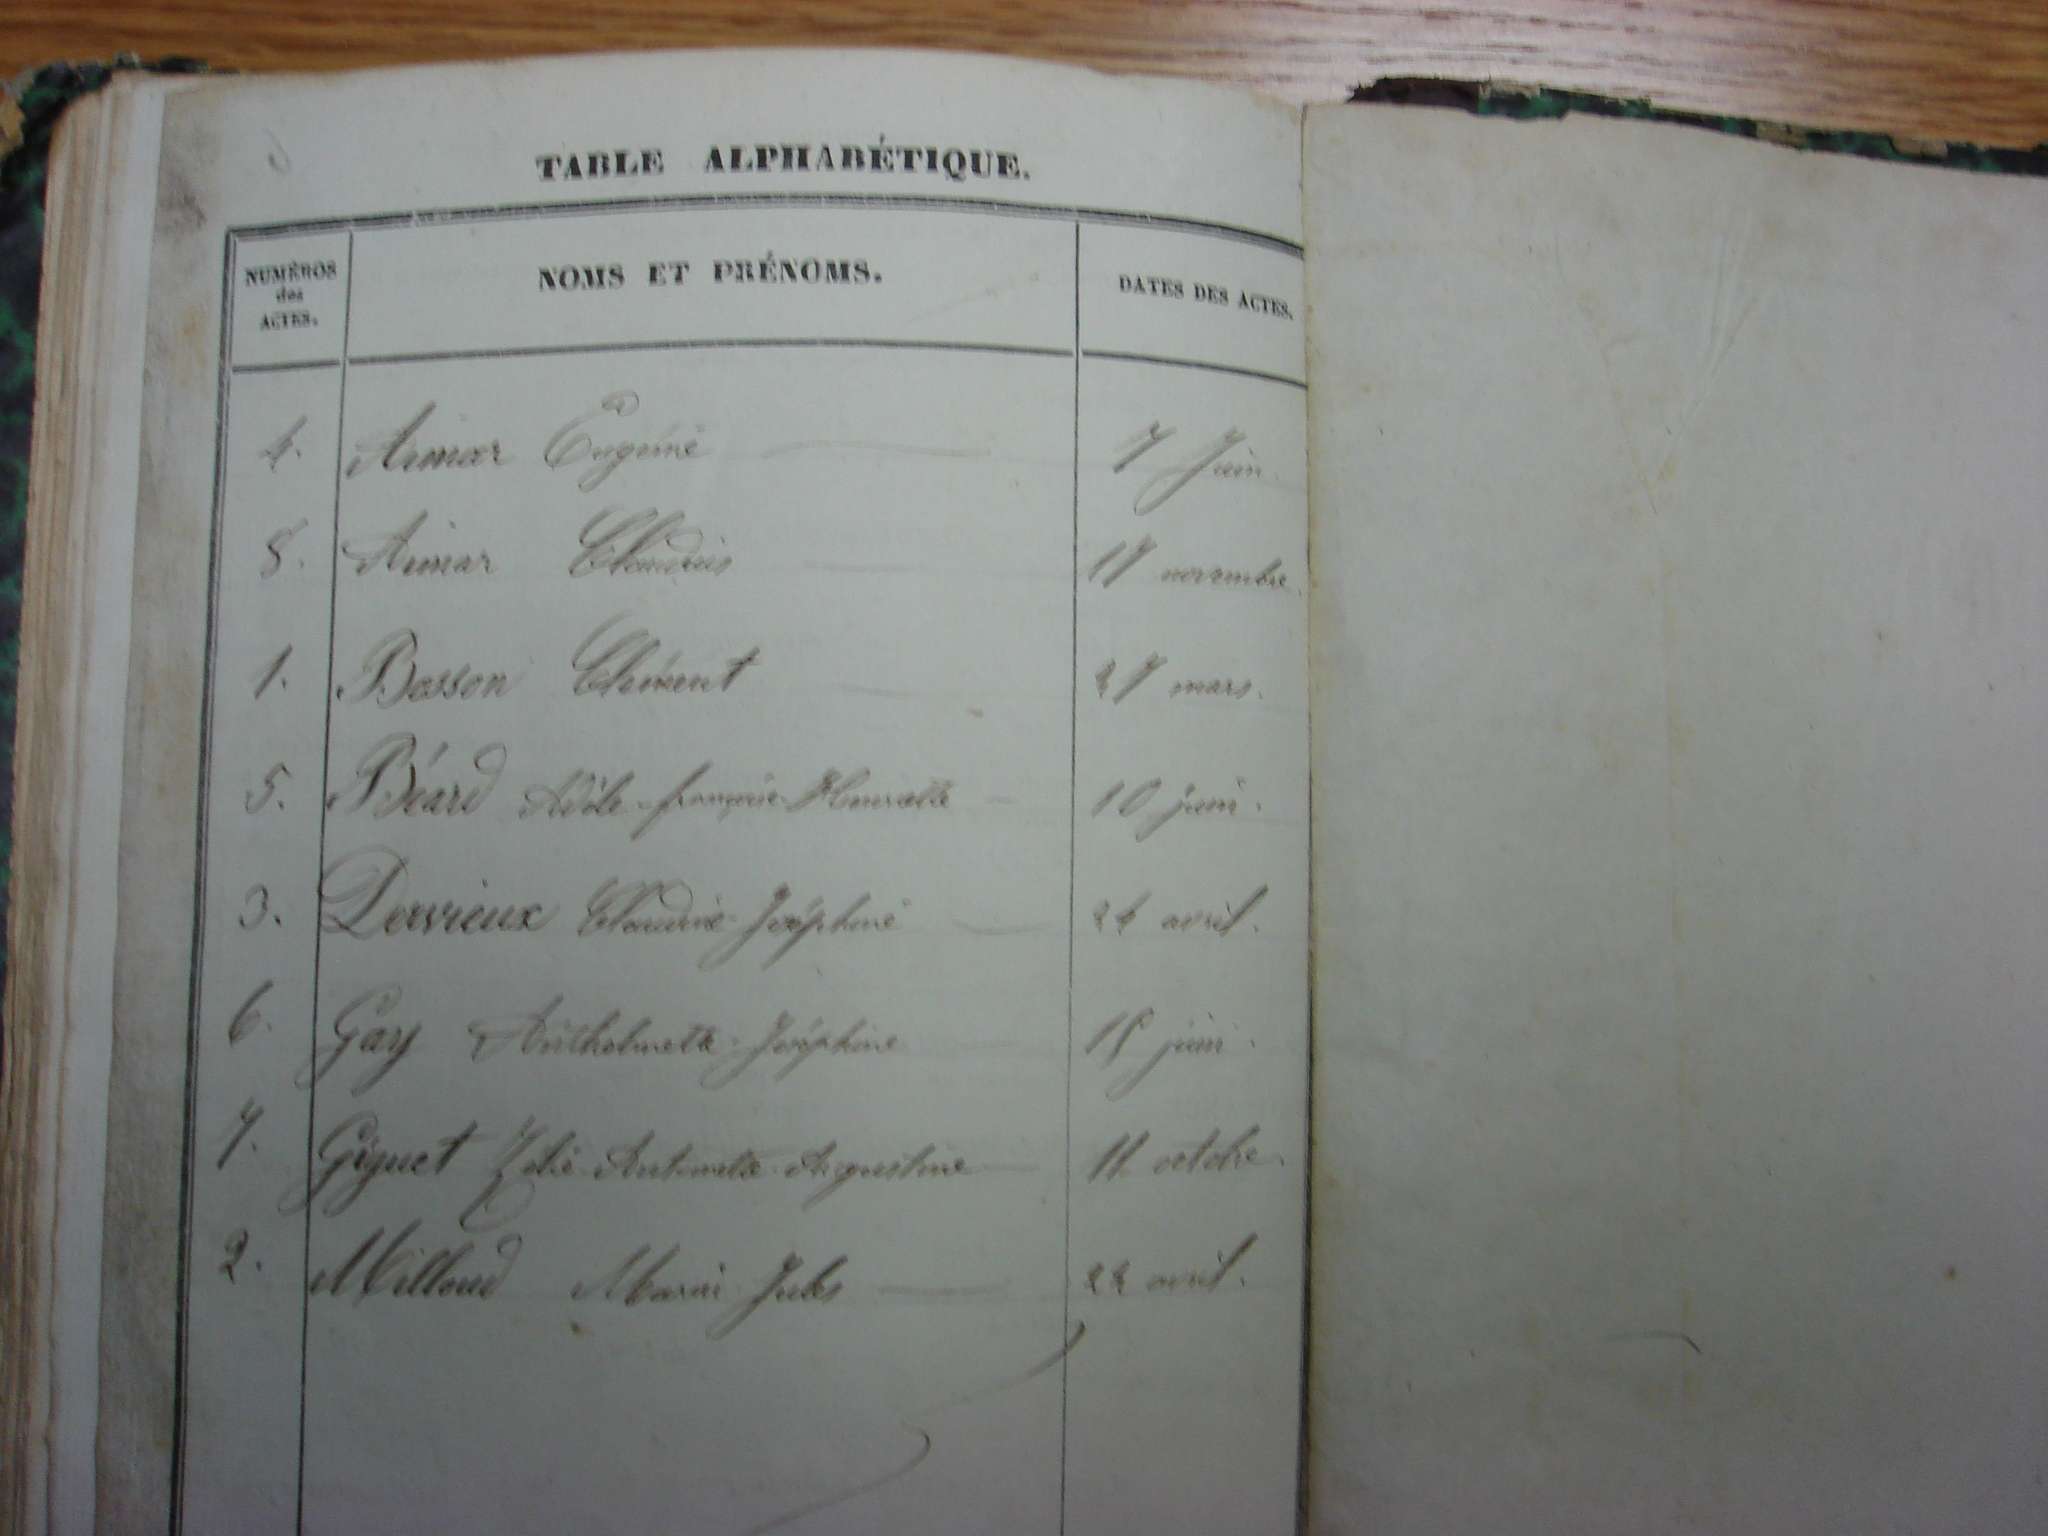 TABLE ALPHABÉTIQUE.
NUMÉROS des ACTES. NOMS ET PRÉNOMS. DATES DES ACTES.
4. Aimar Eugénie 7 Juin.
8. Aimar Claudius 17 novembre.
1. Bosson Clément 27 mars.
5. Béard Adèle-françoise-Henriette 10 juin.
3. Dervieux Claudine-Joséphine 24 avril.
6. Gay Anthelmette-Joséphine 18 juin.
7. Giguet Zélie-Antoinette-Augustine 11 octobre.
2. Milloud Marie-Jules 22 avril.